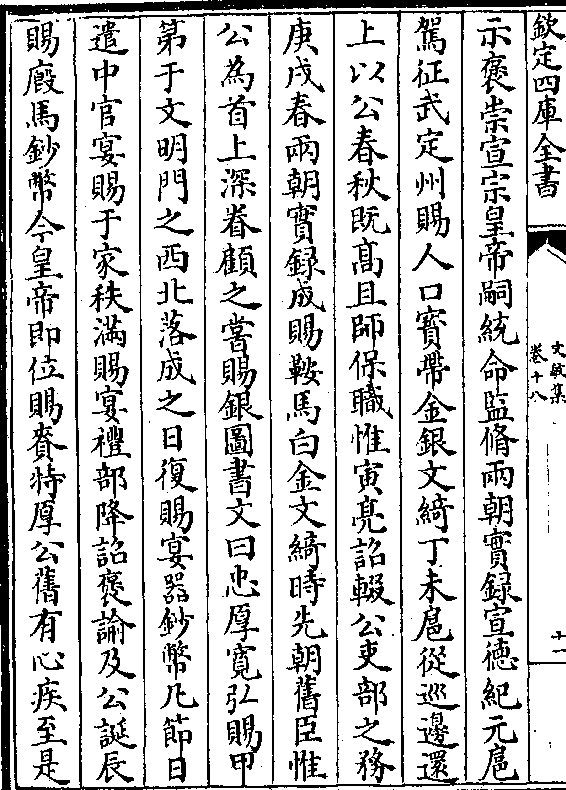 欽定四庫全書
文敏集
卷十八
十一
示褒崇宣宗皇帝嗣統命監脩兩朝實録宣徳紀元扈
駕征武定州賜人口寳帶金銀文綺丁未扈從巡邊還
上以公春秋既髙且師保職惟寅亮詔輟公吏部之務
庚戌春兩朝實録成賜鞍馬白金文綺時先朝舊臣惟
公為首上深眷顧之嘗賜銀圖書文曰忠厚寛弘賜甲
第于文明門之西北落成之日復賜宴器鈔幣凡節日
遣中官宴賜于家秩滿賜宴禮部降詔褒諭及公誕辰
賜廐馬鈔幣今皇帝即位賜賚特厚公舊有心疾至是